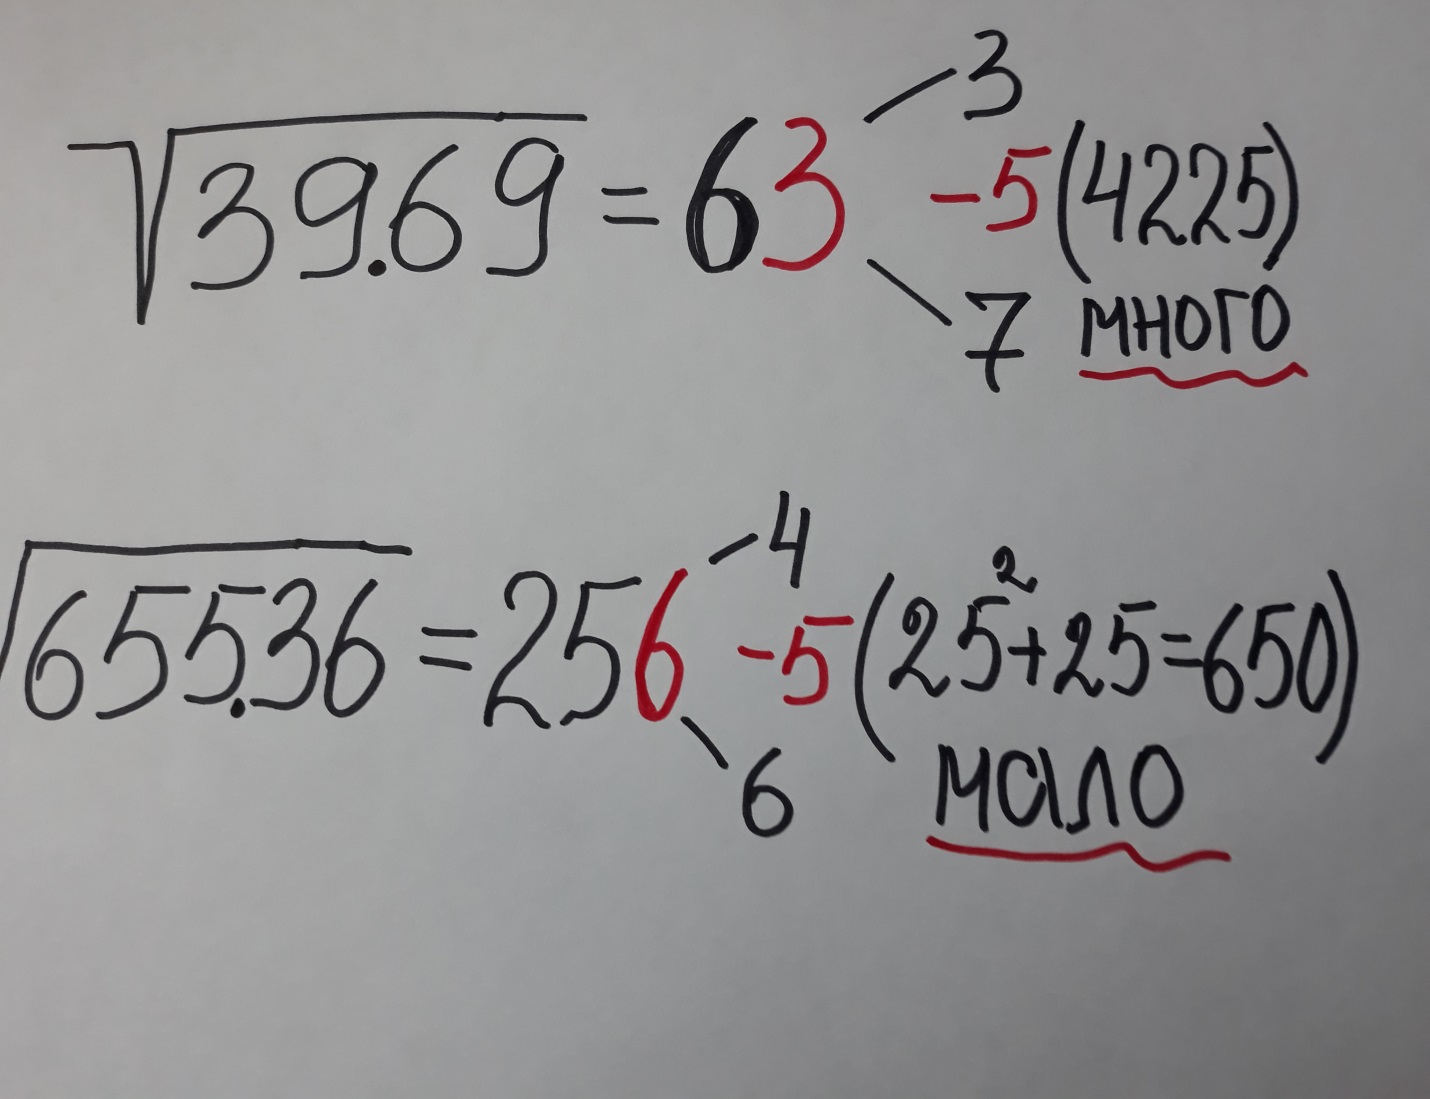 3
√39.69 = 63 -5(4225)
7 много
4
√655.36 = 256 -5(25²+25=650)
6 мало